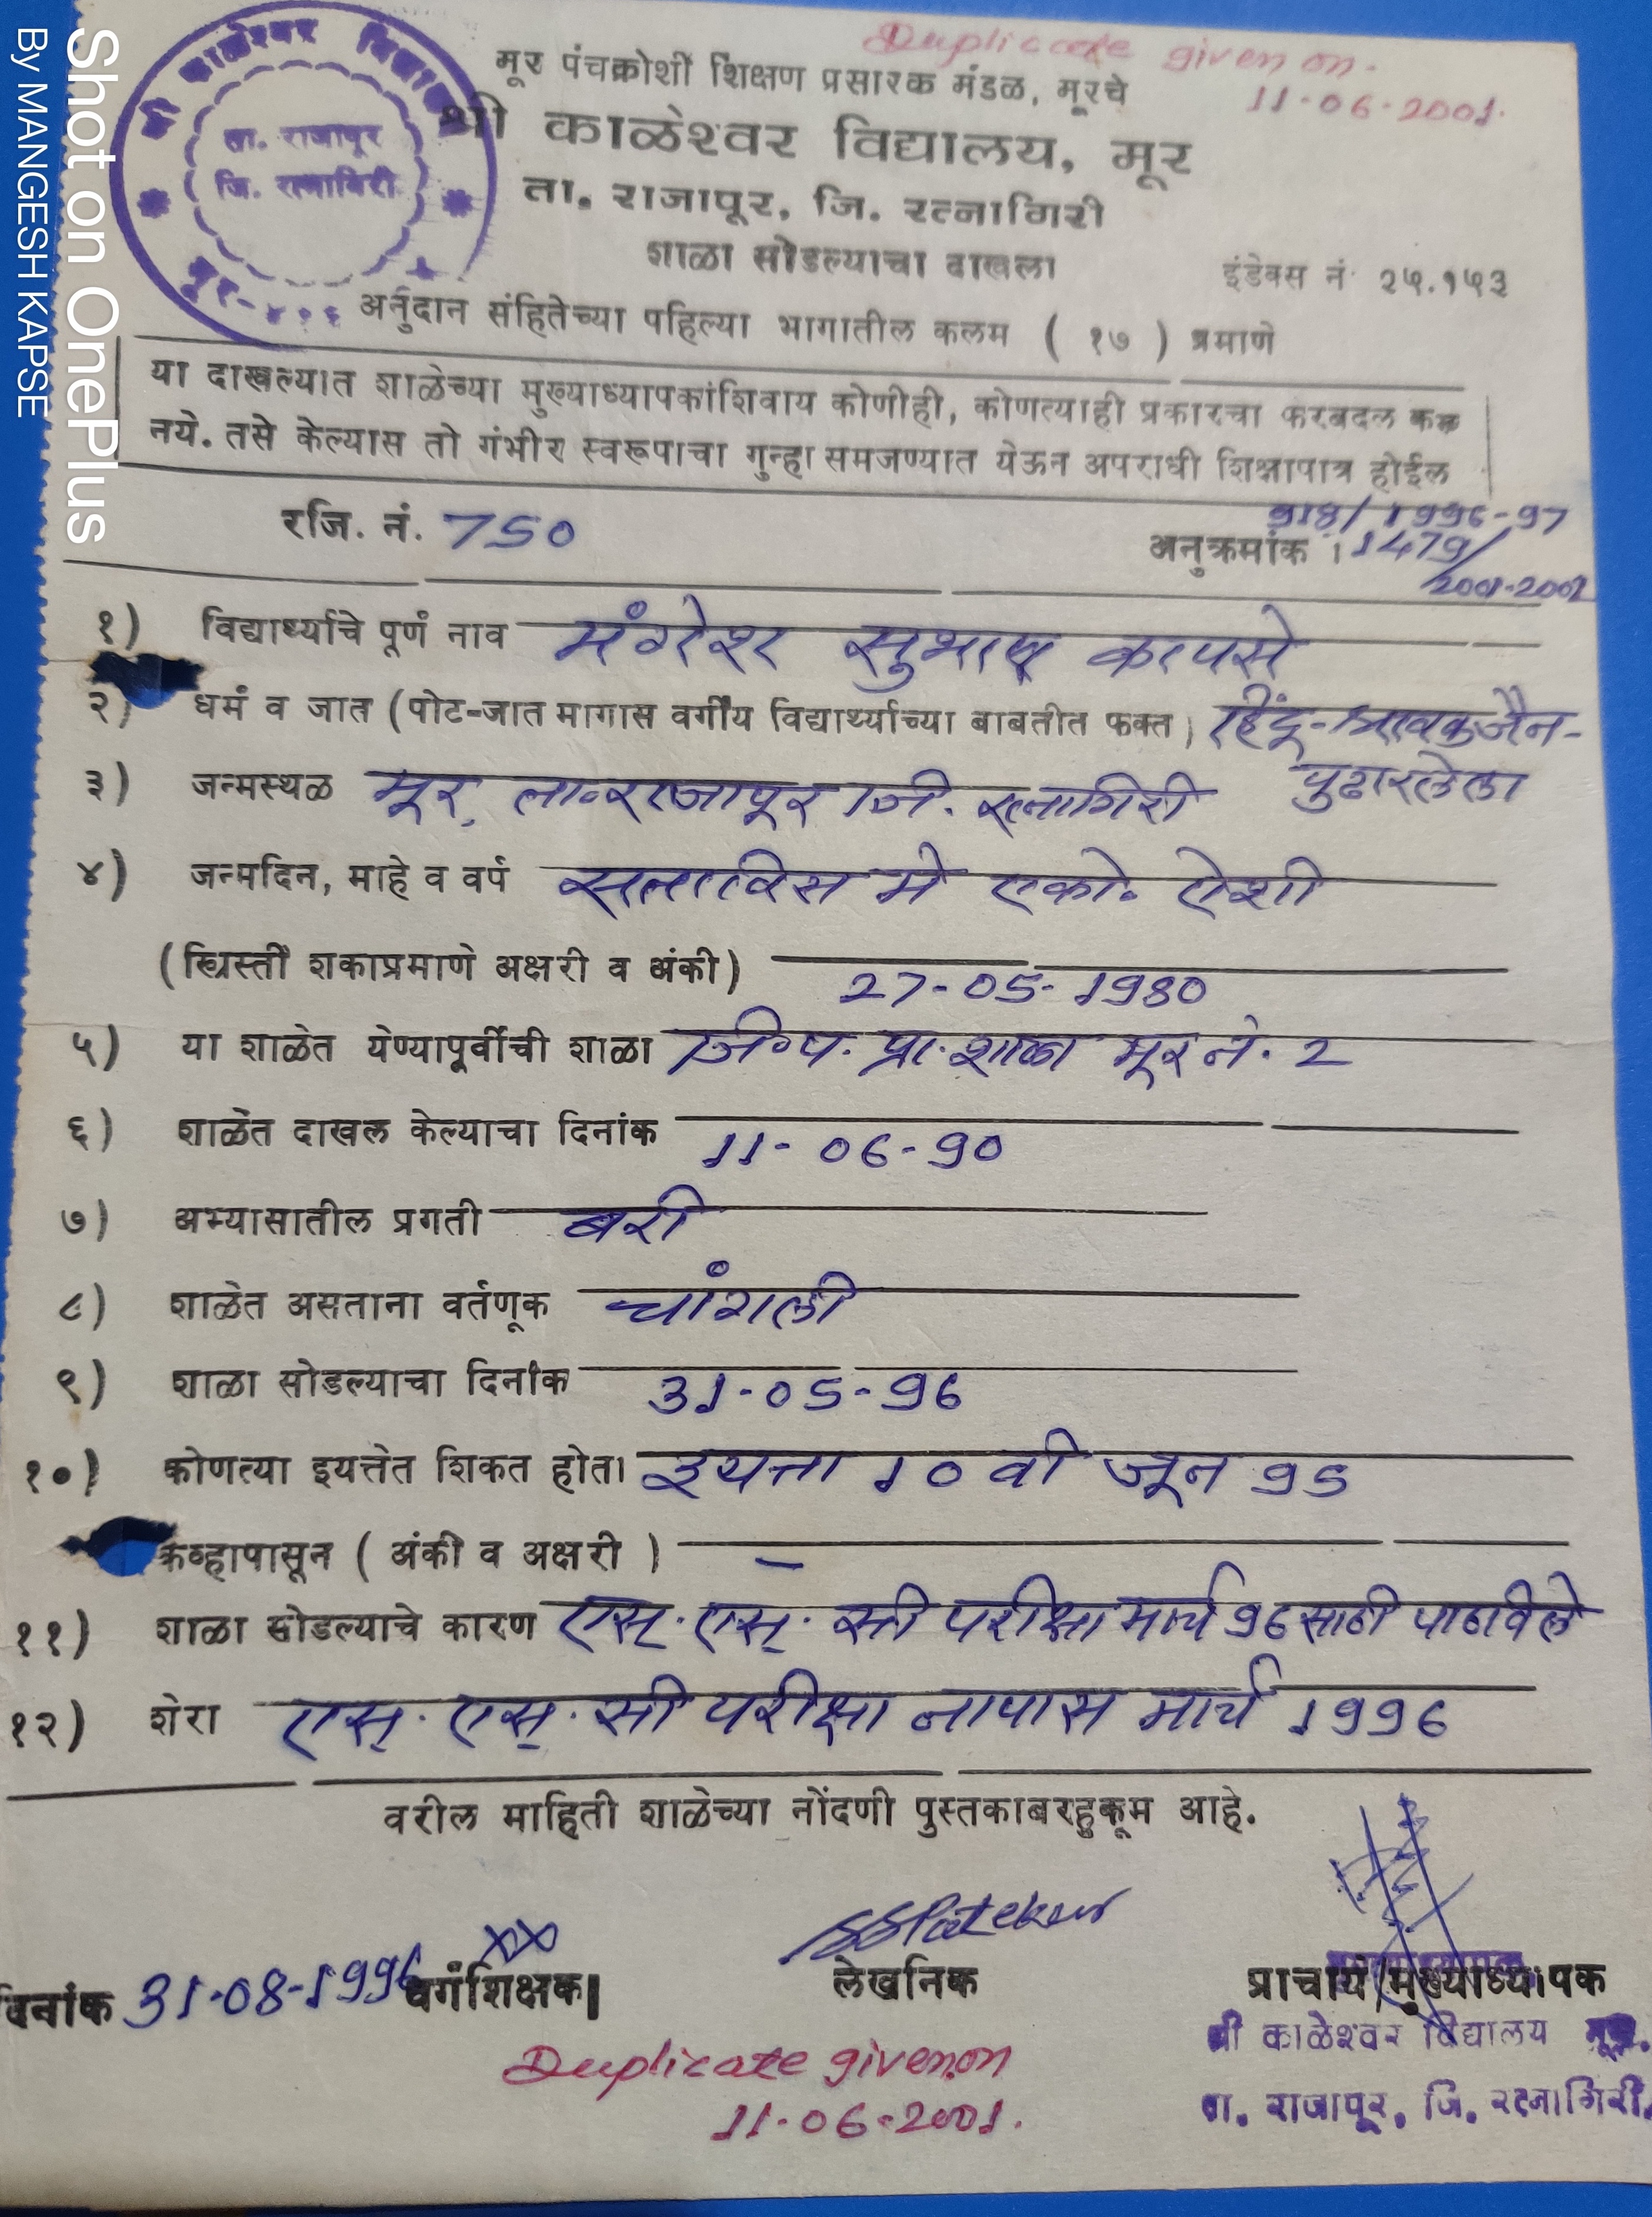 Duplicate given on.
11-06-2001.
मूर पंचक्रोशी शिक्षण प्रसारक मंडळ, मूरचे
श्री काळेश्वर विद्यालय, मूर
ता. राजापूर, जि. रत्नागिरी
शाळा सोडल्याचा दाखला
इंडेक्स नं २५.१५३
श्री काळेश्वर
ता. राजापूर
जि. रत्नागिरी
अर्नुदान संहितेच्या पहिल्या भागातील कलम ( १७ ) प्रमाणे
या दाखल्यात शाळेच्या मुख्याध्यापकांशिवाय कोणीही, कोणत्याही प्रकारचा फरबदल करू
नये. तसे केल्यास तो गंभीर स्वरूपाचा गुन्हा समजण्यात येऊन अपराधी शिक्षापात्र होईल
918/1996-97
रजि. नं. 750 अनुक्रमांक । 1479/
2001-2002
१) विद्यार्थ्याचे पूर्ण नाव मंगेश सुभाष कापसे
२) धर्म व जात (पोट-जात मागास वर्गीय विद्यार्थ्याच्या बाबतीत फक्त) हिंदू-श्रावक जैन-
पुढारलेला
३) जन्मस्थळ मूर, ता. राजापूर जि. रत्नागिरी
४) जन्मदिन, माहे व वर्ष सत्ताविस मे एको. ऐंशी
(ख्रिस्ती शकाप्रमाणे अक्षरी व अंकी) 27-05-1980
५) या शाळेत येण्यापूर्वीची शाळा जि.प. प्रा. शाळा मूर नं. 2
६) शाळेत दाखल केल्याचा दिनांक 11-06-90
७) अभ्यासातील प्रगती बरी
८) शाळेत असताना वर्तणूक चांगली
९) शाळा सोडल्याचा दिनांक 31-05-96
१०) कोणत्या इयत्तेत शिकत होता इयत्ता 10 वी जून 95
केव्हापासून ( अंकी व अक्षरी ) —
११) शाळा सोडल्याचे कारण एस्. एस्. सी परीक्षा मार्च 96 साठी पाठविले
१२) शेरा एस्. एस्. सी परीक्षा नापास मार्च 1996
वरील माहिती शाळेच्या नोंदणी पुस्तकाबरहुकूम आहे.
दिनांक 31-08-1996 वर्गशिक्षक लेखनिक प्राचार्य/मुख्याध्यापक
श्री काळेश्वर विद्यालय मूर.
ता. राजापूर, जि. रत्नागिरी.
Duplicate given on
11-06-2001.
Shot on OnePlus
By MANGESH KAPSE